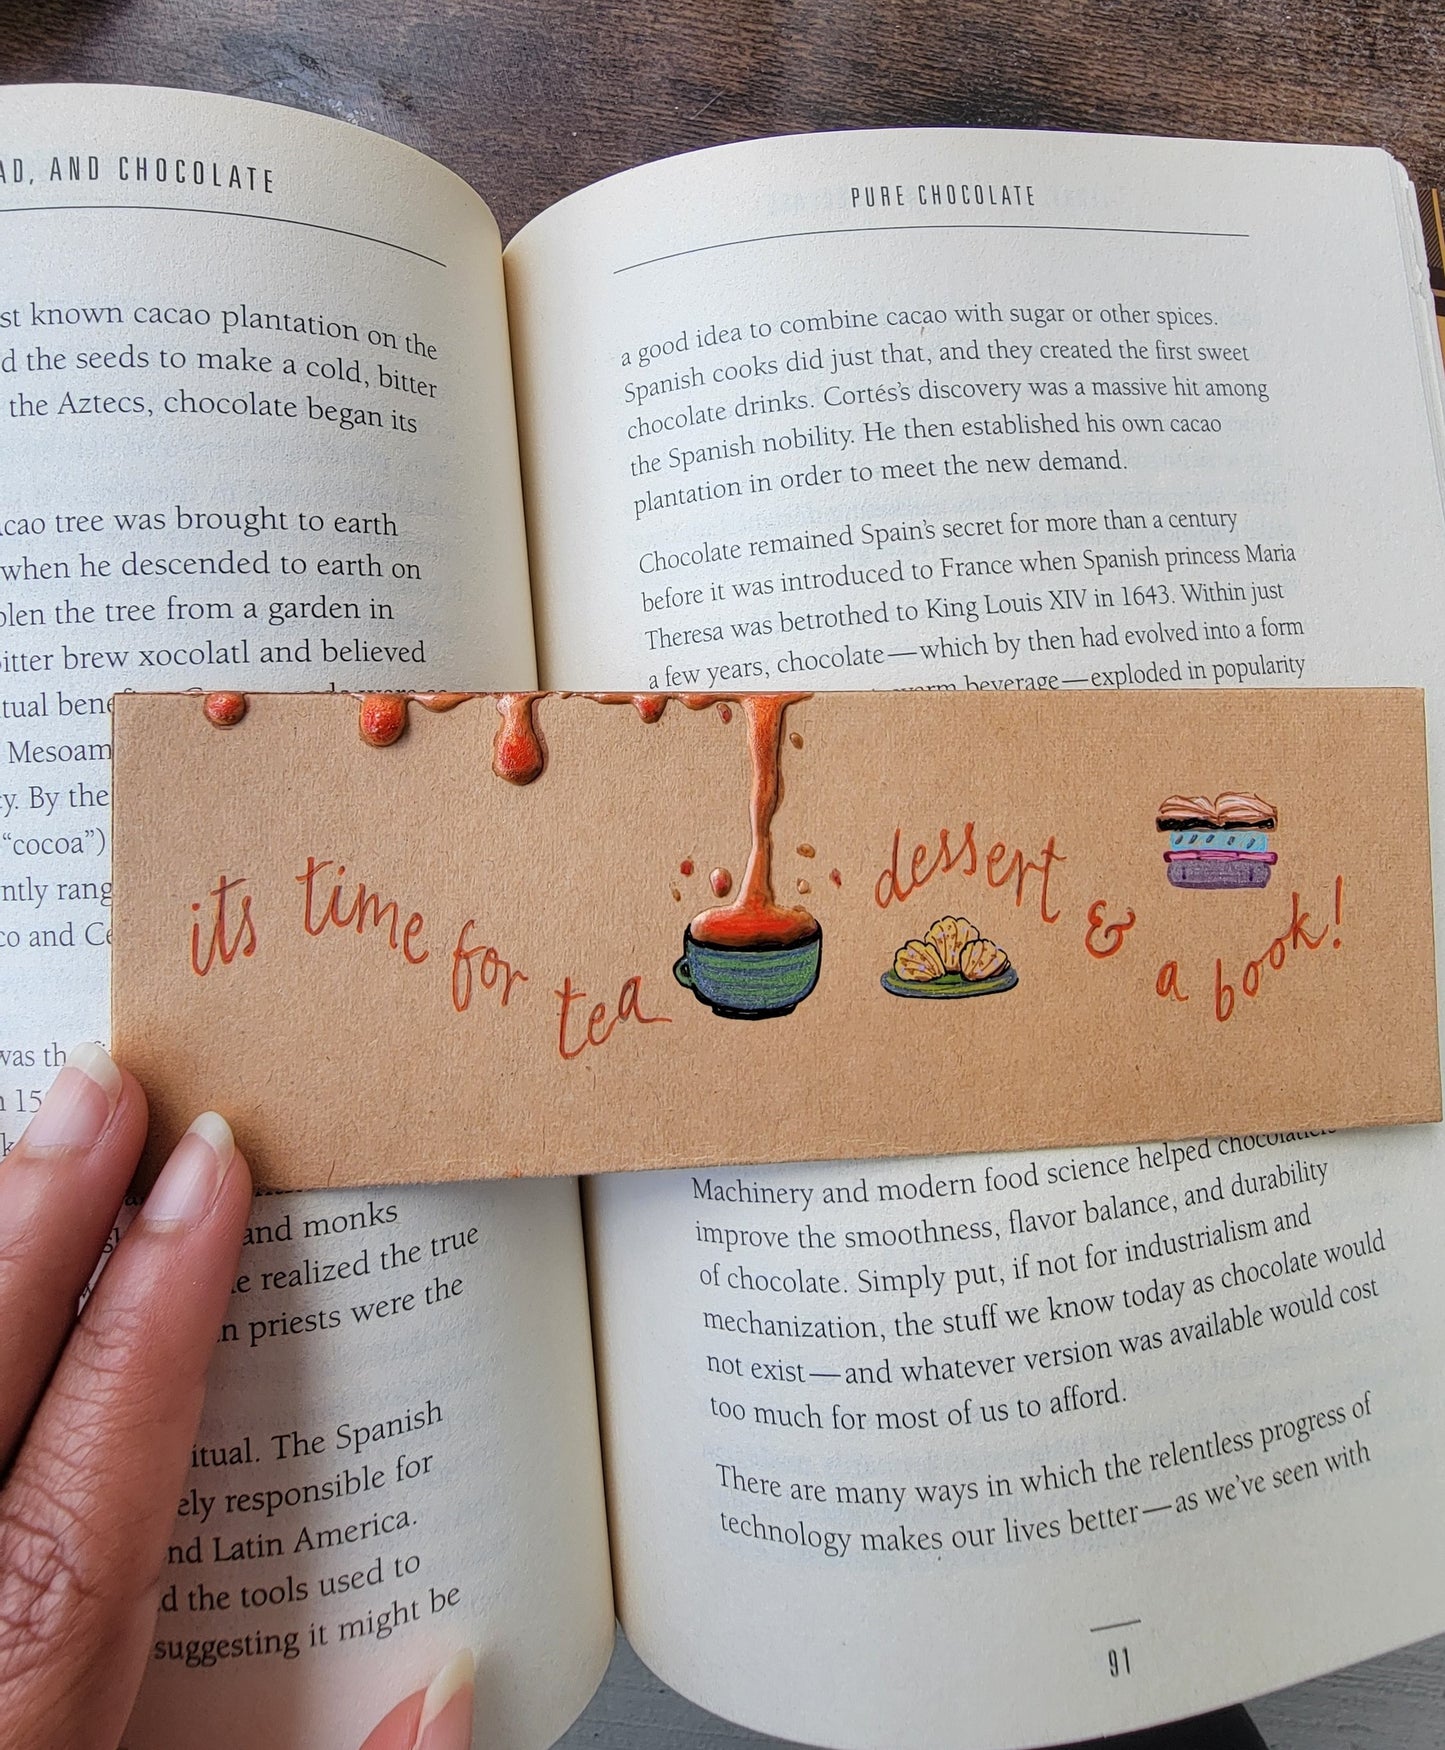 AD, AND CHOCOLATE
st known cacao plantation on the
d the seeds to make a cold, bitter
the Aztecs, chocolate began its
cao tree was brought to earth
when he descended to earth on
olen the tree from a garden in
itter brew xocolatl and believed
tual
Mesoam
y. By the
“cocoa”)
ntly rang
co and
was
15
and monks
e realized the true
n priests were the
itual. The Spanish
ely responsible for
nd Latin America.
d the tools used to
suggesting it might be
PURE CHOCOLATE
a good idea to combine cacao with sugar or other spices.
Spanish cooks did just that, and they created the first sweet
chocolate drinks. Cortés’s discovery was a massive hit among
the Spanish nobility. He then established his own cacao
plantation in order to meet the new demand.
Chocolate remained Spain’s secret for more than a century
before it was introduced to France when Spanish princess Maria
Theresa was betrothed to King Louis XIV in 1643. Within just
a few years, chocolate—which by then had evolved into a form
beverage—exploded in popularity
its time for tea dessert & a book!
Machinery and modern food science helped
improve the smoothness, flavor balance, and durability
of chocolate. Simply put, if not for industrialism and
mechanization, the stuff we know today as chocolate would
not exist—and whatever version was available would cost
too much for most of us to afford.
There are many ways in which the relentless progress of
technology makes our lives better—as we’ve seen with
91